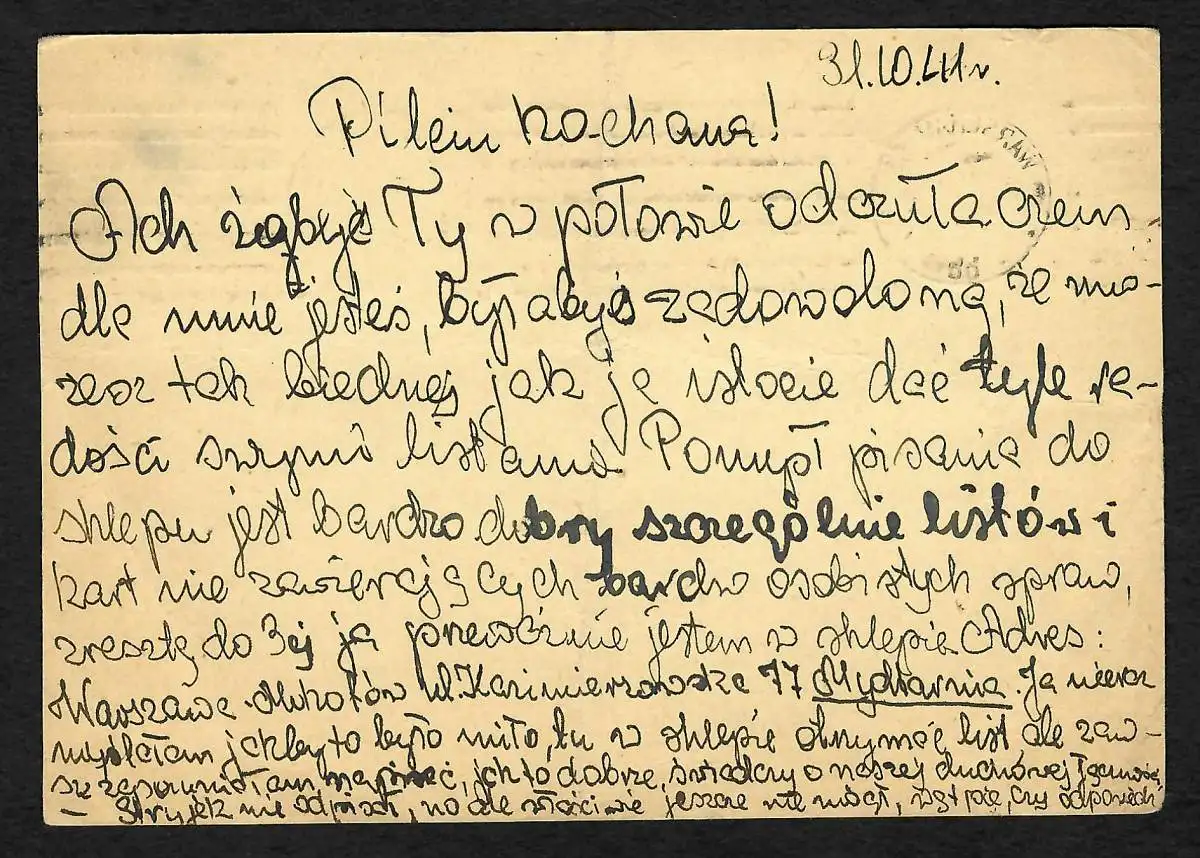 31.10.41r.
Pilein kochana!
Ach żebyś Ty w połowie odczuła czem
dla mnie jesteś, byłabyś zadowolona, że mo-
żesz tak biednej jak ja istocie dać tyle ra-
dości swymi listami Pomysł pisania do
sklepu jest bardzo dobry szczególnie listów i
kart nie zawierających bardzo osobistych spraw,
zresztą do 3ej ja przeważnie jestem w sklepie Adres:
Warszawa-Mokotów ul. Kazimierzowska 77 Mydlarnia. Ja nieraz
myślałam jakby to było miło, tu w sklepie otrzymać list, ale zaw-
sze zapomniałam napisać, jak to dobrze świadczy o naszej duchowej łączności
— Stryjek nie odpisał, no ale właściwie jeszcze nie mógł, wątpię, czy odpowiedź